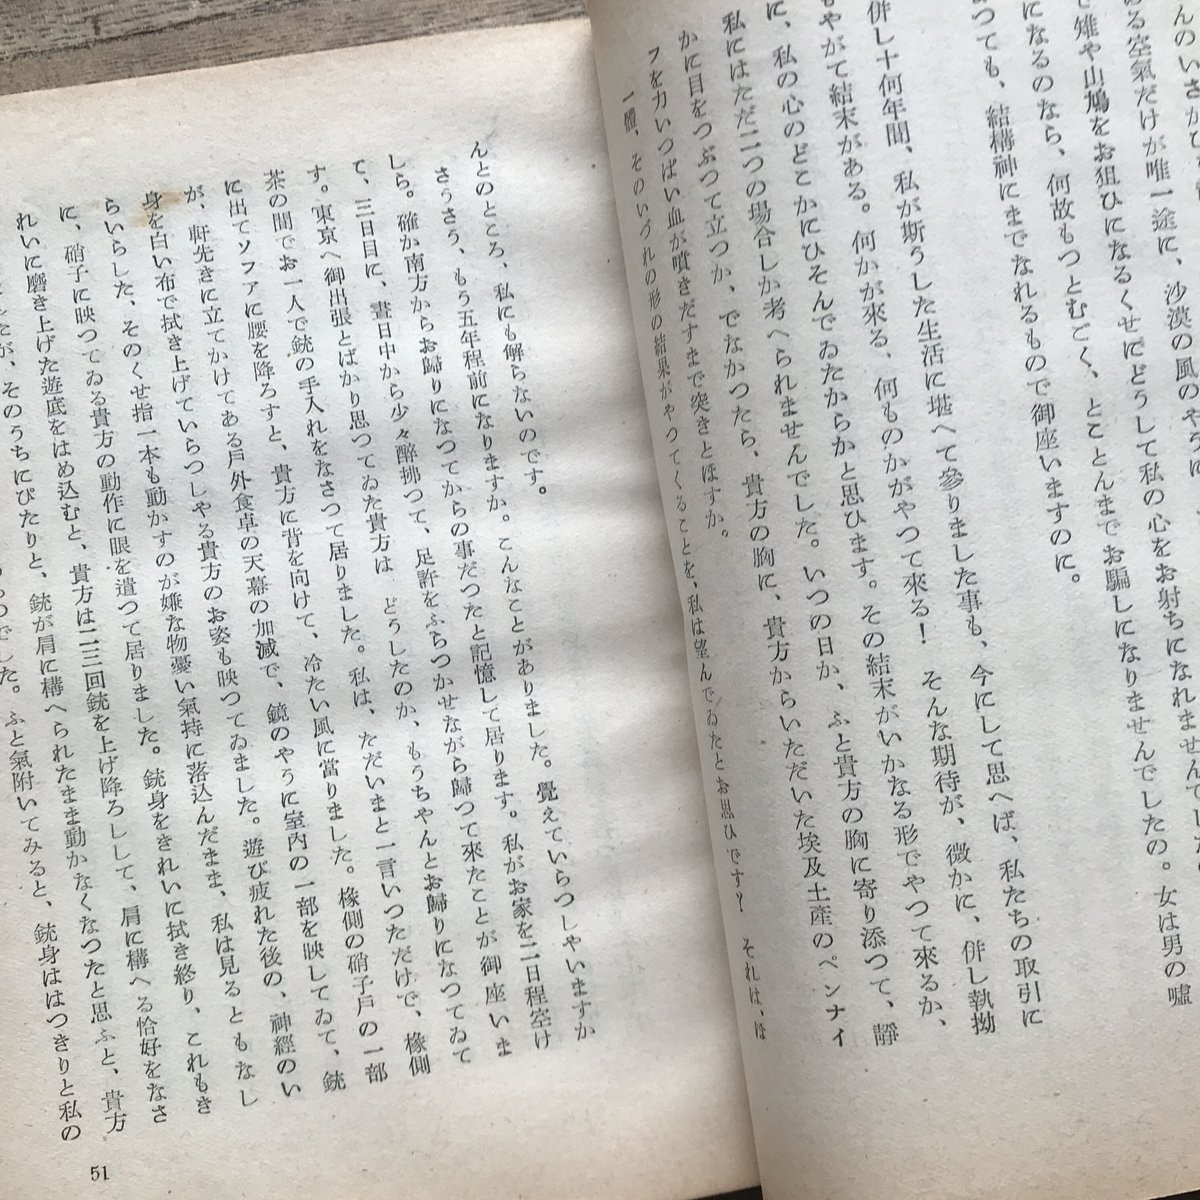 んのいさかひ
ある空氣だけが唯一途に、沙漠の風のやうに
で雉や山鳩をお狙ひになるくせにどうして私の心をお射ちになれませんでした
になるのなら、何故もつとむごく、とことんまでお騙しになりませんでしたの。女は男の嘘
よつても、結構神にまでなれるもので御座いますのに。
併し十何年間、私が斯うした生活に堪へて參りました事も、今にして思へば、私たちの取引に
もやがて結末がある。何かが來る、何ものかがやつて來る！　そんな期待が、微かに、併し執拗
に、私の心のどこかにひそんでゐたからかと思ひます。その結末がいかなる形でやつて來るか、
私にはただ二つの場合しか考へられませんでした。いつの日か、ふと貴方の胸に寄り添つて、靜
かに目をつぶつて立つか、でなかつたら、貴方の胸に、貴方からいただいた埃及土產のペンナイ
フを力いつぱい血が噴きだすまで突きとほすか。
一體、そのいづれの形の結果がやつてくることを、私は望んでゐたとお思ひです？　それは、ほ
んとのところ、私にも解らないのです。
さうさう、もう五年程前になりますか。こんなことがありました。覺えていらつしやいますか
しら。確か南方からお歸りになつてからの事だつたと記憶して居ります。私がお家を二日程空け
て、三日目に、晝日中から少々醉拂つて、足許をふらつかせながら歸つて來たことが御座いま
す。東京へ御出張とばかり思つてゐた貴方は　どうしたのか、もうちやんとお歸りになつてゐて
茶の間でお一人で銃の手入れをなさつて居りました。私は、ただいまと一言いつただけで、椽側
に出てソファに腰を降ろすと、貴方に背を向けて、冷たい風に當りました。椽側の硝子戶の一部
が、軒先きに立てかけてある戶外食卓の天幕の加減で、鏡のやうに室內の一部を映してゐて、銃
身を白い布で拭き上げていらつしやる貴方のお姿も映つてゐました。遊び疲れた後の、神經のい
らいらした、そのくせ指一本も動かすのが嫌な物憂い氣持に落込んだまま、私は見るともなし
に、硝子に映つてゐる貴方の動作に眼を遣つて居りました。銃身をきれいに拭き終り、これもき
れいに磨き上げた遊底をはめ込むと、貴方は二三回銃を上げ降ろしして、肩に構へる恰好をなさ
したが、そのうちにぴたりと、銃が肩に構へられたまま動かなくなつたと思ふと、貴方
のでした。ふと氣附いてみると、銃身ははつきりと私の
51